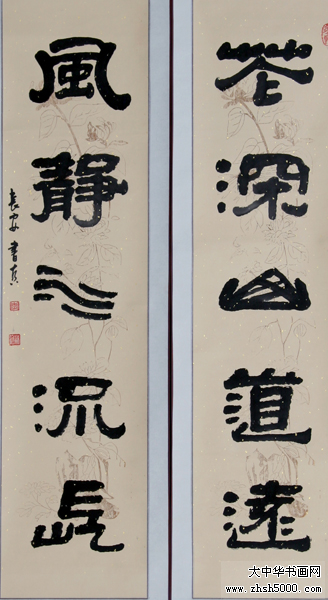 花深山道遠
風靜心況長
長安
大中华书画网
www.zhsh5000.com